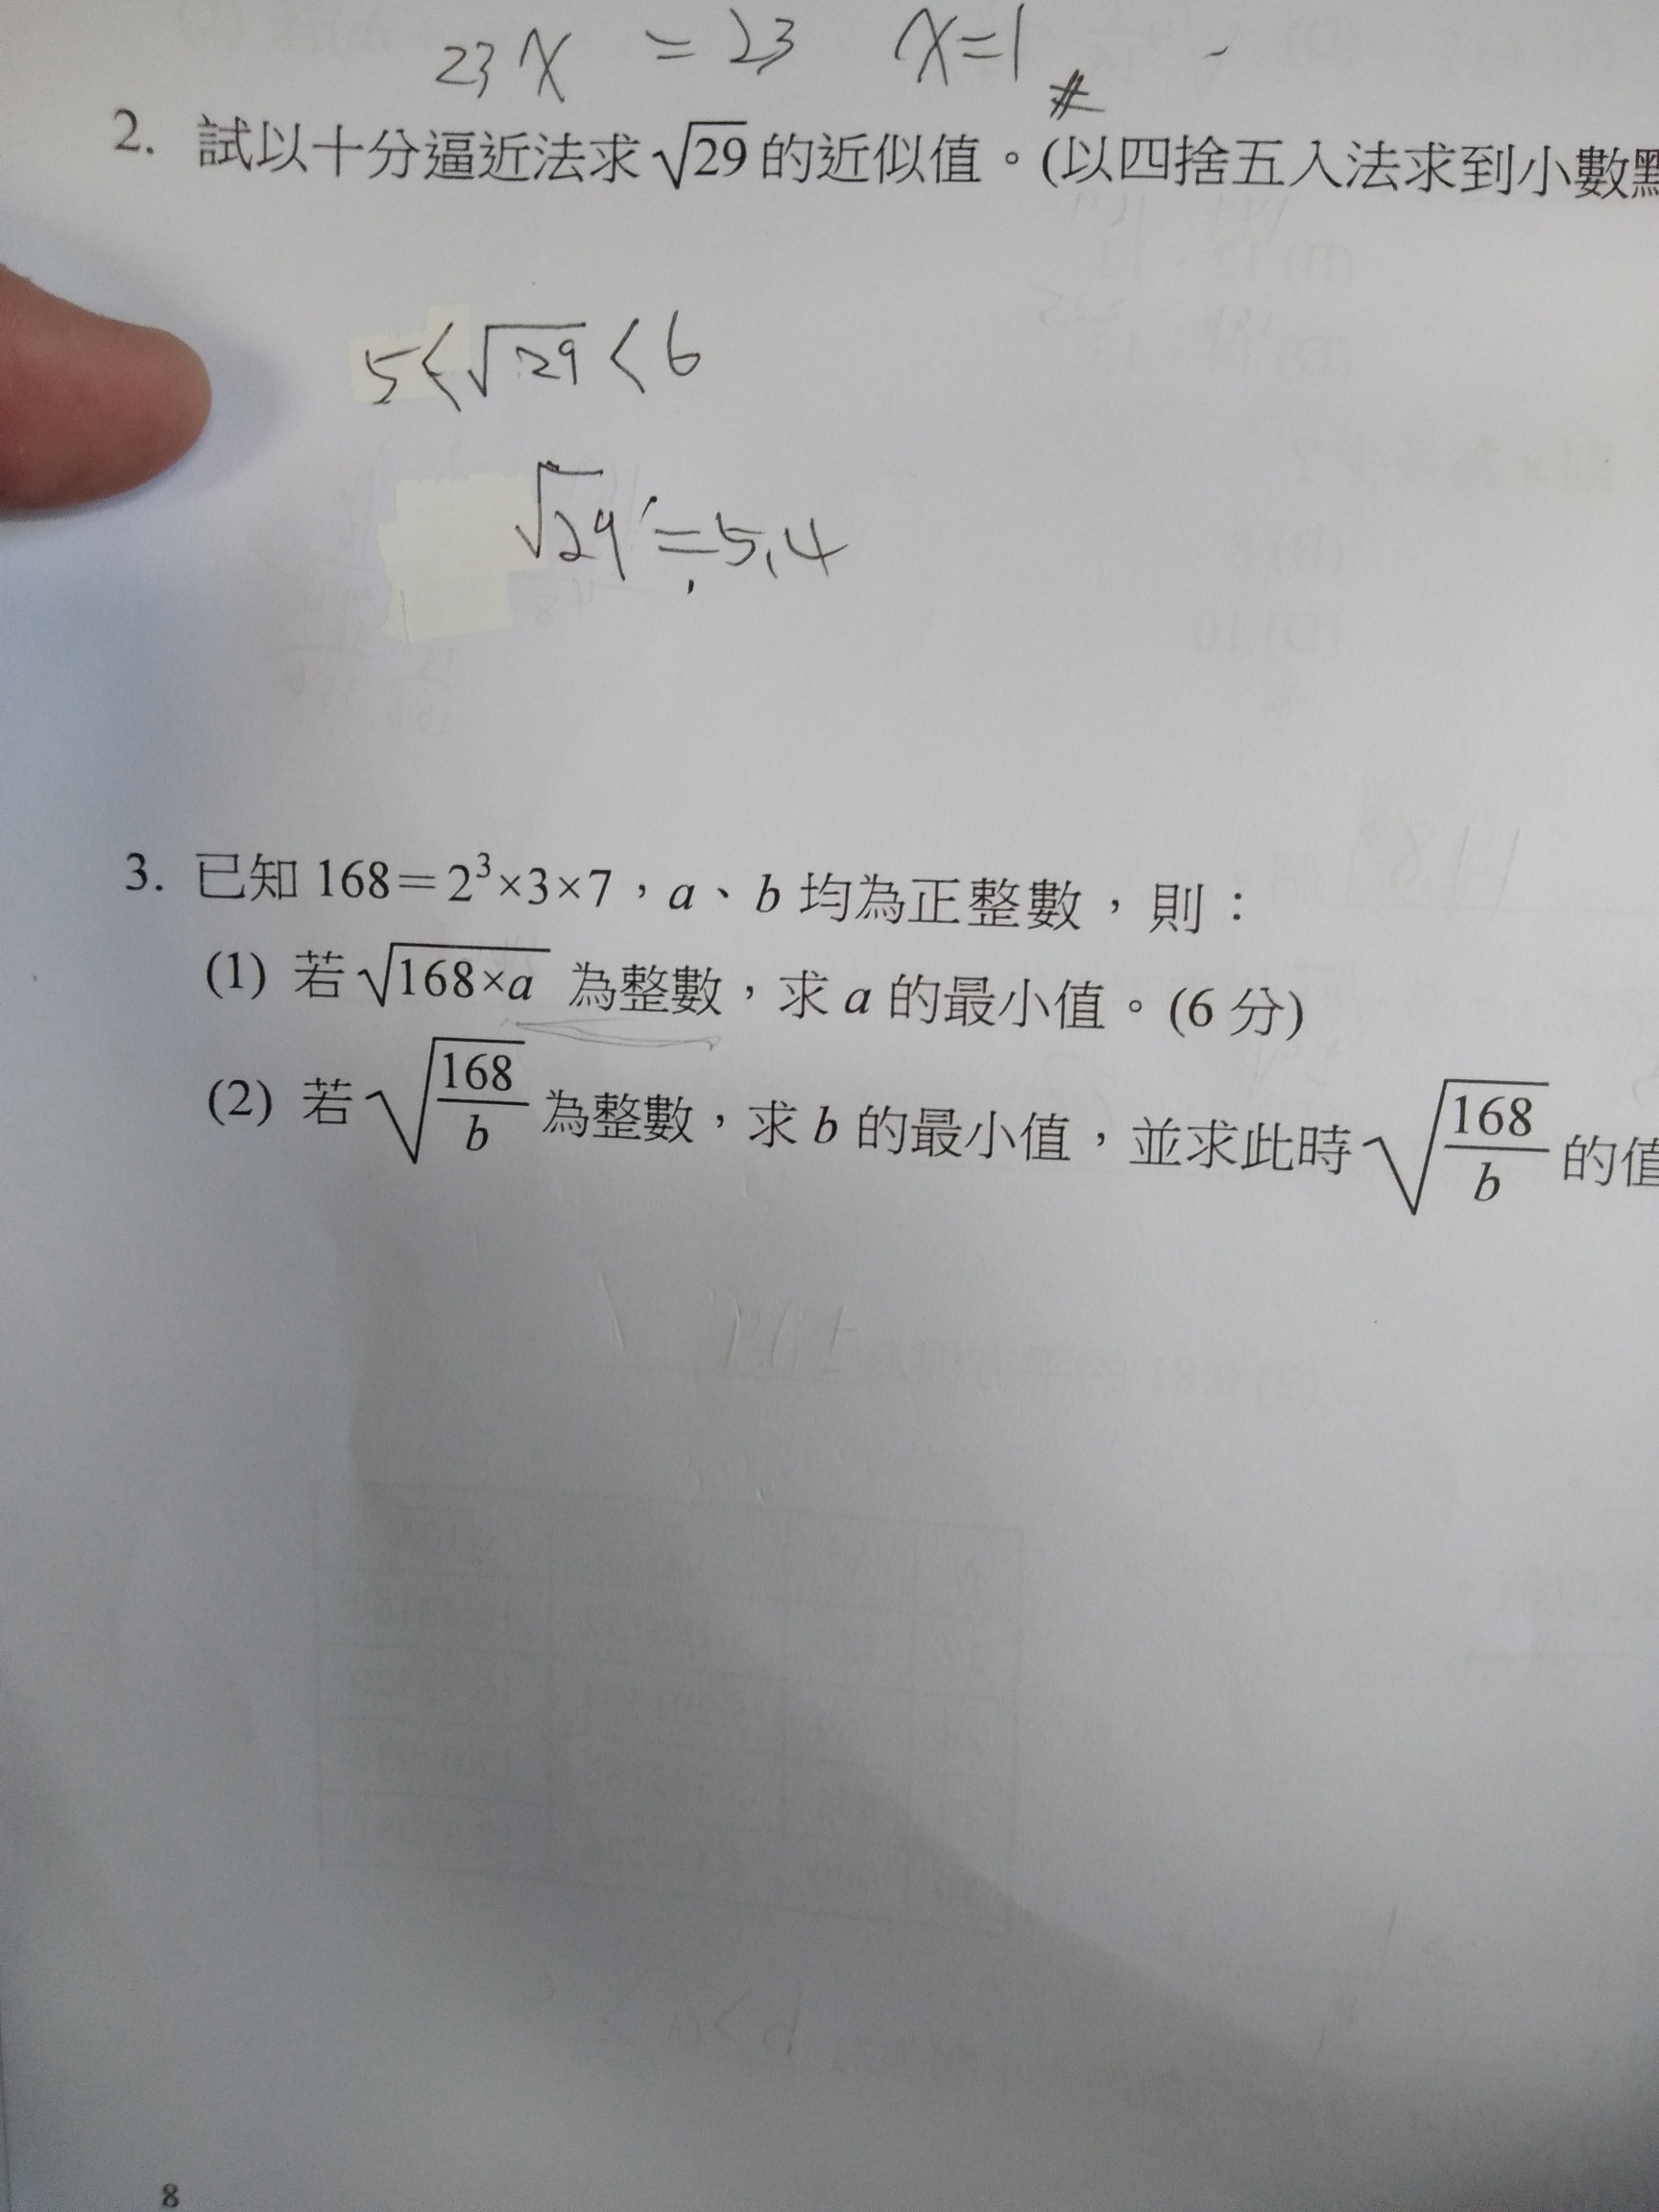 23x = 23 x=1 #
2. 試以十分逼近法求√29的近似值。(以四捨五入法求到小數點
5<√29<6
√29≒5.4
3. 已知 168=2³×3×7，a、b 均為正整數，則：
(1) 若√168×a 為整數，求 a 的最小值。(6 分)
(2) 若√168/b 為整數，求 b 的最小值，並求此時√168/b 的值
8